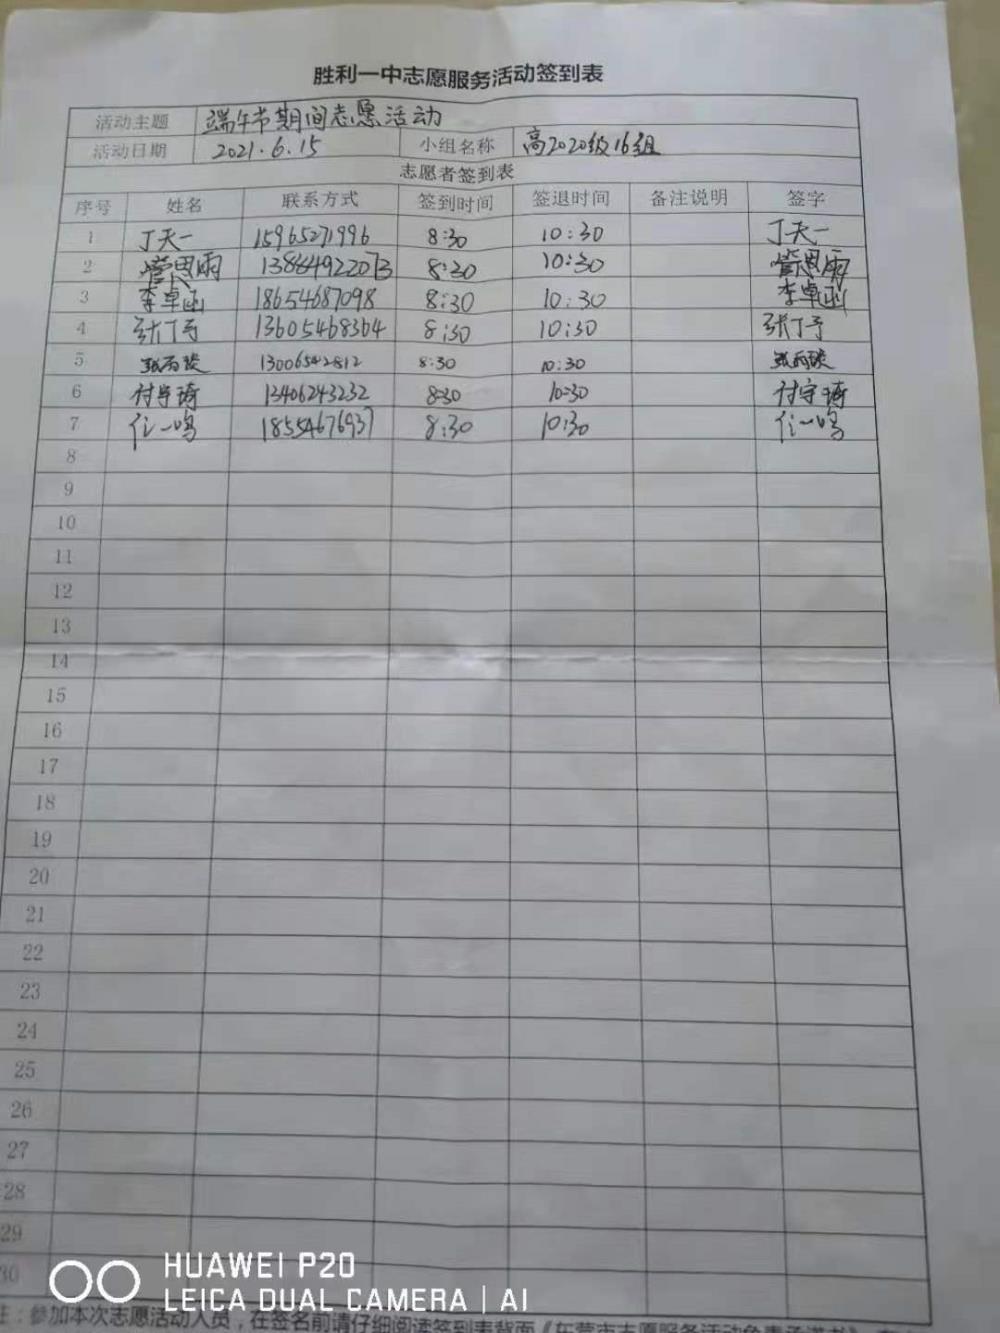 胜利一中志愿服务活动签到表
活动主题 端午节期间志愿活动
活动日期 2021.6.15 小组名称 高2020级16组
志愿者签到表
序号 姓名 联系方式 签到时间 签退时间 备注说明 签字
1 丁天一 15965271996 8:30 10:30 丁天一
2 管思雨 8:30 10:30 管思雨
3 李卓函 18654687098 8:30 10:30 李卓函
4 张丁予 13605468364 8:30 10:30 张丁予
5 13006542812 8:30 10:30
6 付守琦 13406243232 8:30 10:30 付守琦
7 任一鸣 18554676937 8:30 10:30 任一鸣
8
9
10
11
12
13
14
15
16
17
18
19
20
21
22
23
24
25
26
27
28
29
30
HUAWEI P20
LEICA DUAL CAMERA | AI
注：参加本次志愿活动人员，在签名前请仔细阅读签到表背面《东营市志愿服务活动免责承诺书》